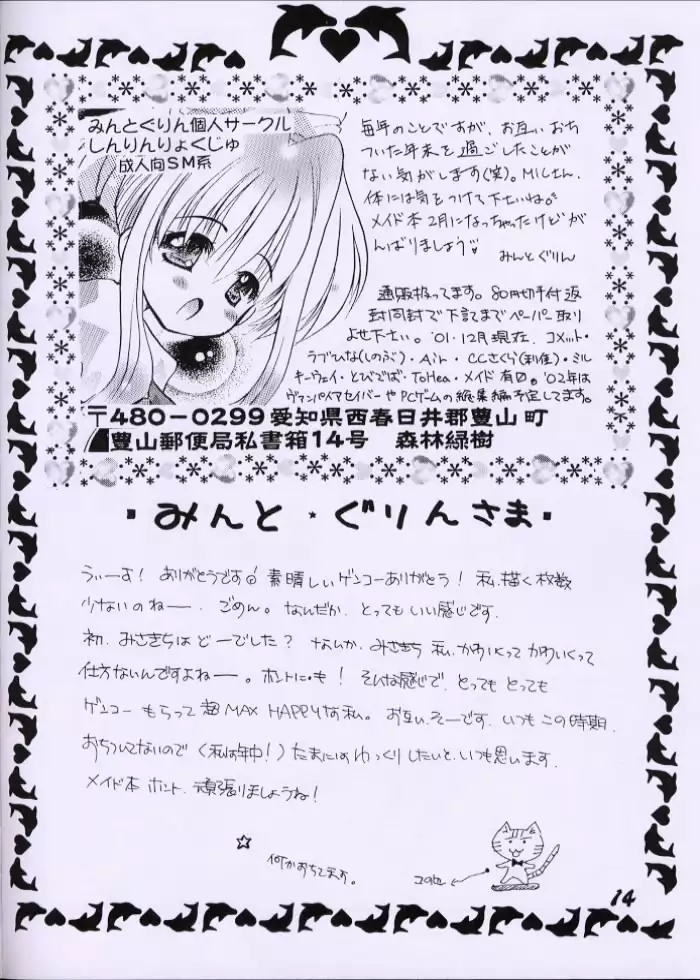 みんとぐりん個人サークル
しんりんりょくじゅ
成人向SM系
毎年のことですが、お互いおち
ついた年末を過ごしたことが
ない気がします(笑)。MICさん、
体には気をつけて下さいね。
メイド本2月になっちゃったけどが
んばりましょう
みんとぐりん
通販扱ってます。80円切手付返
封同封で下記までペーパー取り
よせ下さい。'01・12月現在、コメット・
ラブひな(しのぶ)・Air・CCさくら(利佳)・ミル
キーウェイ・とびでば・ToHea・メイド有口。'02年は
ヴァンパイアセイバーやPCゲームの総集編予定してます。
〒480-0299愛知県西春日井郡豊山町
豊山郵便局私書箱14号 森林緑樹
みんと・ぐりんさま
うぃーす! ありがとうです 素晴しいゲンコーありがとう! 私、描く枚数
少ないのねー、ごめん。なんだか、とってもいい感じです。
初、みさきちはどーでした? なんか、みさきち 私、かわいくって かわいくって
仕方ないんですよねー。ホントにも! そんな感じで、とっても とっても
ゲンコー もらって 超MAX HAPPYな私。お互い、そーです、いつも この時期、
おちついてないので(私は年中!) たまには ゆっくりしたいと、いつも思います。
メイド本 ホント、頑張りましょうね!
☆
何かおちてます。
14